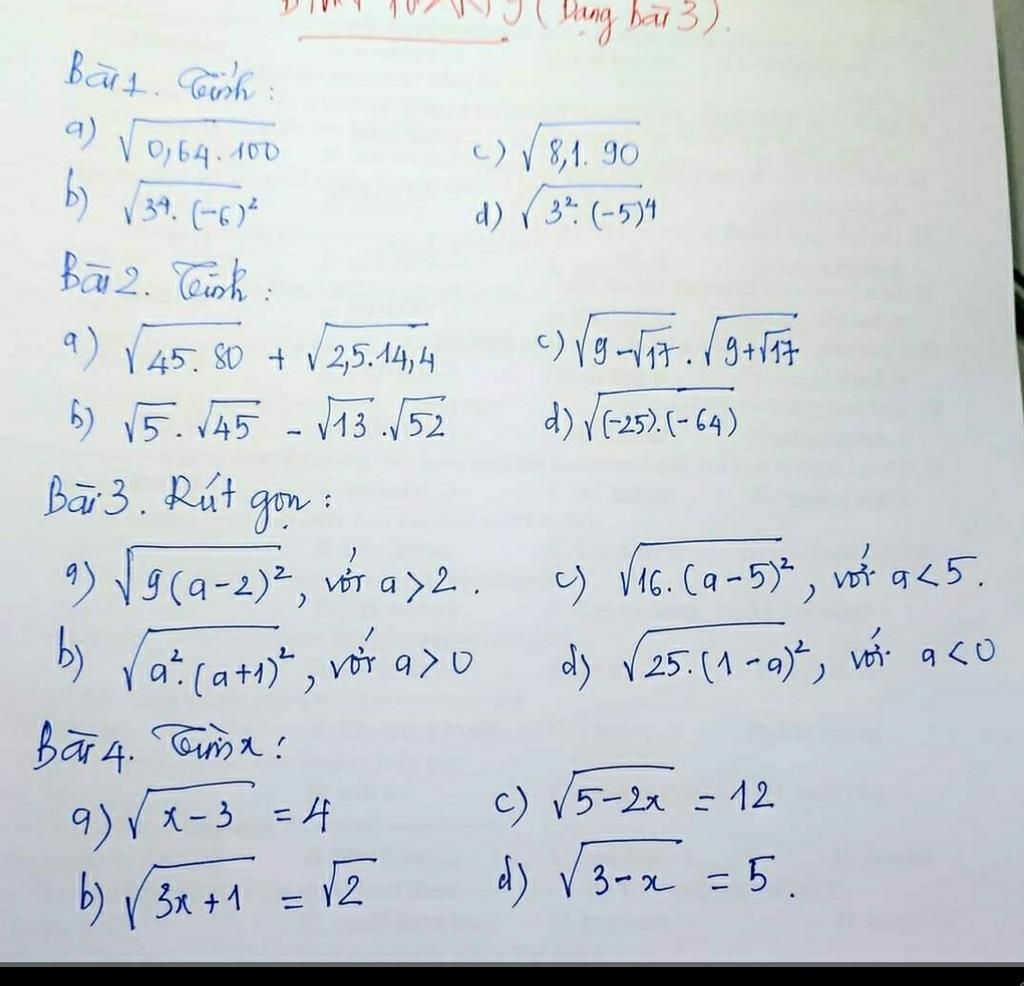 (Dạng bài 3).
Bài 1. Tính :
a) √0,64.100 c) √8,1.90
b) √3⁴.(-6)² d) √3².(-5)⁴
Bài 2. Tính :
a) √45.80 + √2,5.14,4 c) √9-√17 . √9+√17
b) √5.√45 - √13.√52 d) √(-25).(-64)
Bài 3. Rút gọn :
a) √9(a-2)², với a>2. c) √16.(a-5)², với a<5.
b) √a².(a+1)², với a>0 d) √25.(1-a)², với a<0
Bài 4. Tìm x :
a) √x-3 = 4 c) √5-2x = 12
b) √3x+1 = √2 d) √3-x = 5.